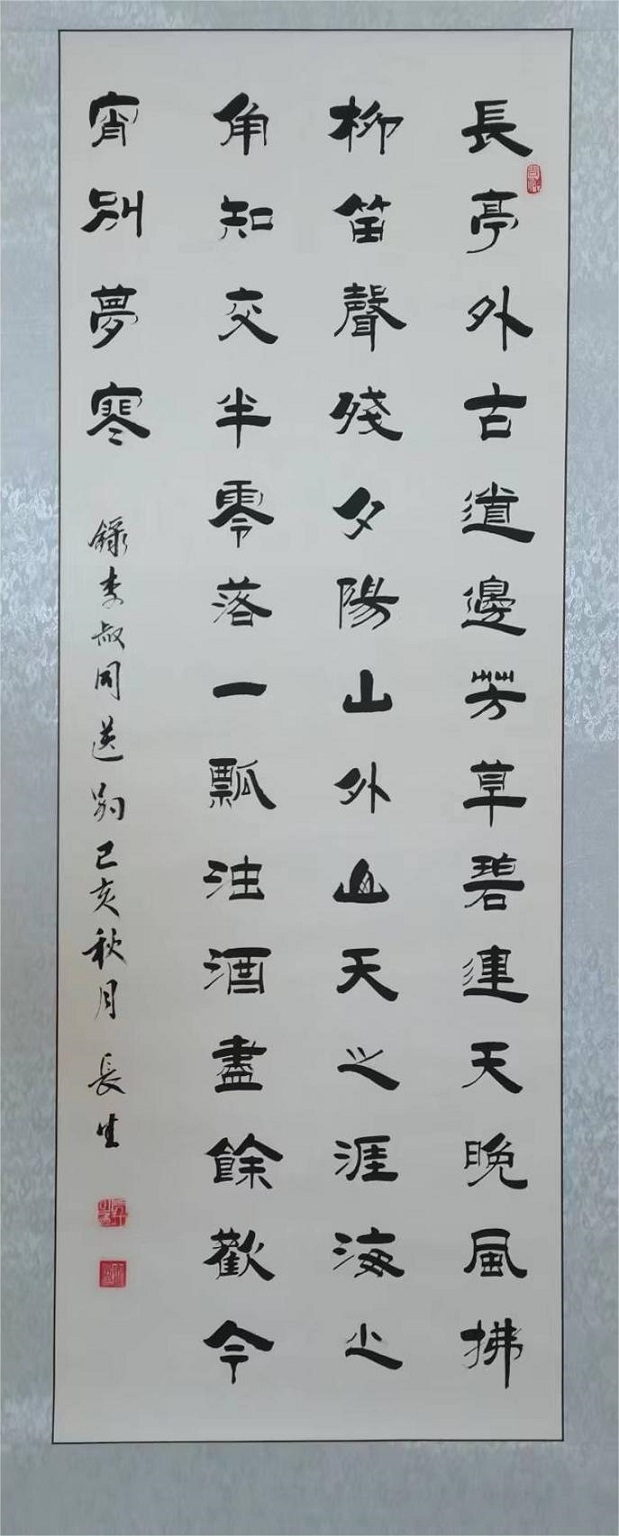 長亭外古道邊芳草碧連天晚風拂
柳笛聲殘夕陽山外山天之涯海之
角知交半零落一瓢濁酒盡餘歡今
宵別夢寒
錄李叔同送別己亥秋月 長生